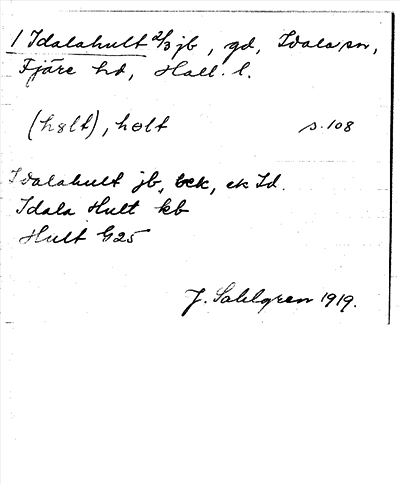 1 Idalahult 2/3 jb, gd, Idala sn,
Fjäre hd, Hall. l.
(hɞlt), hɵlt s. 108
Idalahult jb, bck, ek Id.
Idala Hult kb
Hult G25
J. Sahlgren 1919.